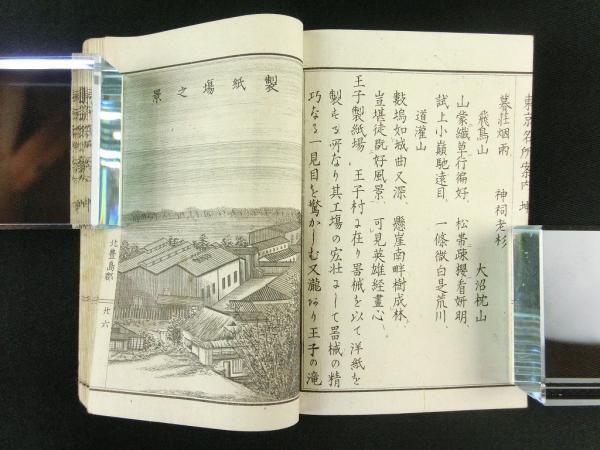 東京名所案内 地
暮荘烟雨、 神祠老杉
飛鳥山 大沼枕山
山棠纖草行偏好、 松帯疎櫻看妍明、
試上小巓馳遠目、 一條微白是荒川、
道灌山
數塢如城曲又深、 懸崖南畔樹成林、
豈堪徒説好風景、 可見英雄経畫心、
王子製紙場 王子村に在り器械を以て洋紙を
製する所なり其工場の宏壮にして器械の精
巧なる一見目を驚かしむ又瀧あり王子の滝
製紙場之景
北豊島郡
廿六